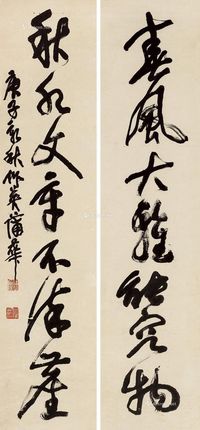 春風大雅能容物
秋水文章不染塵
庚子秋作英蒲華